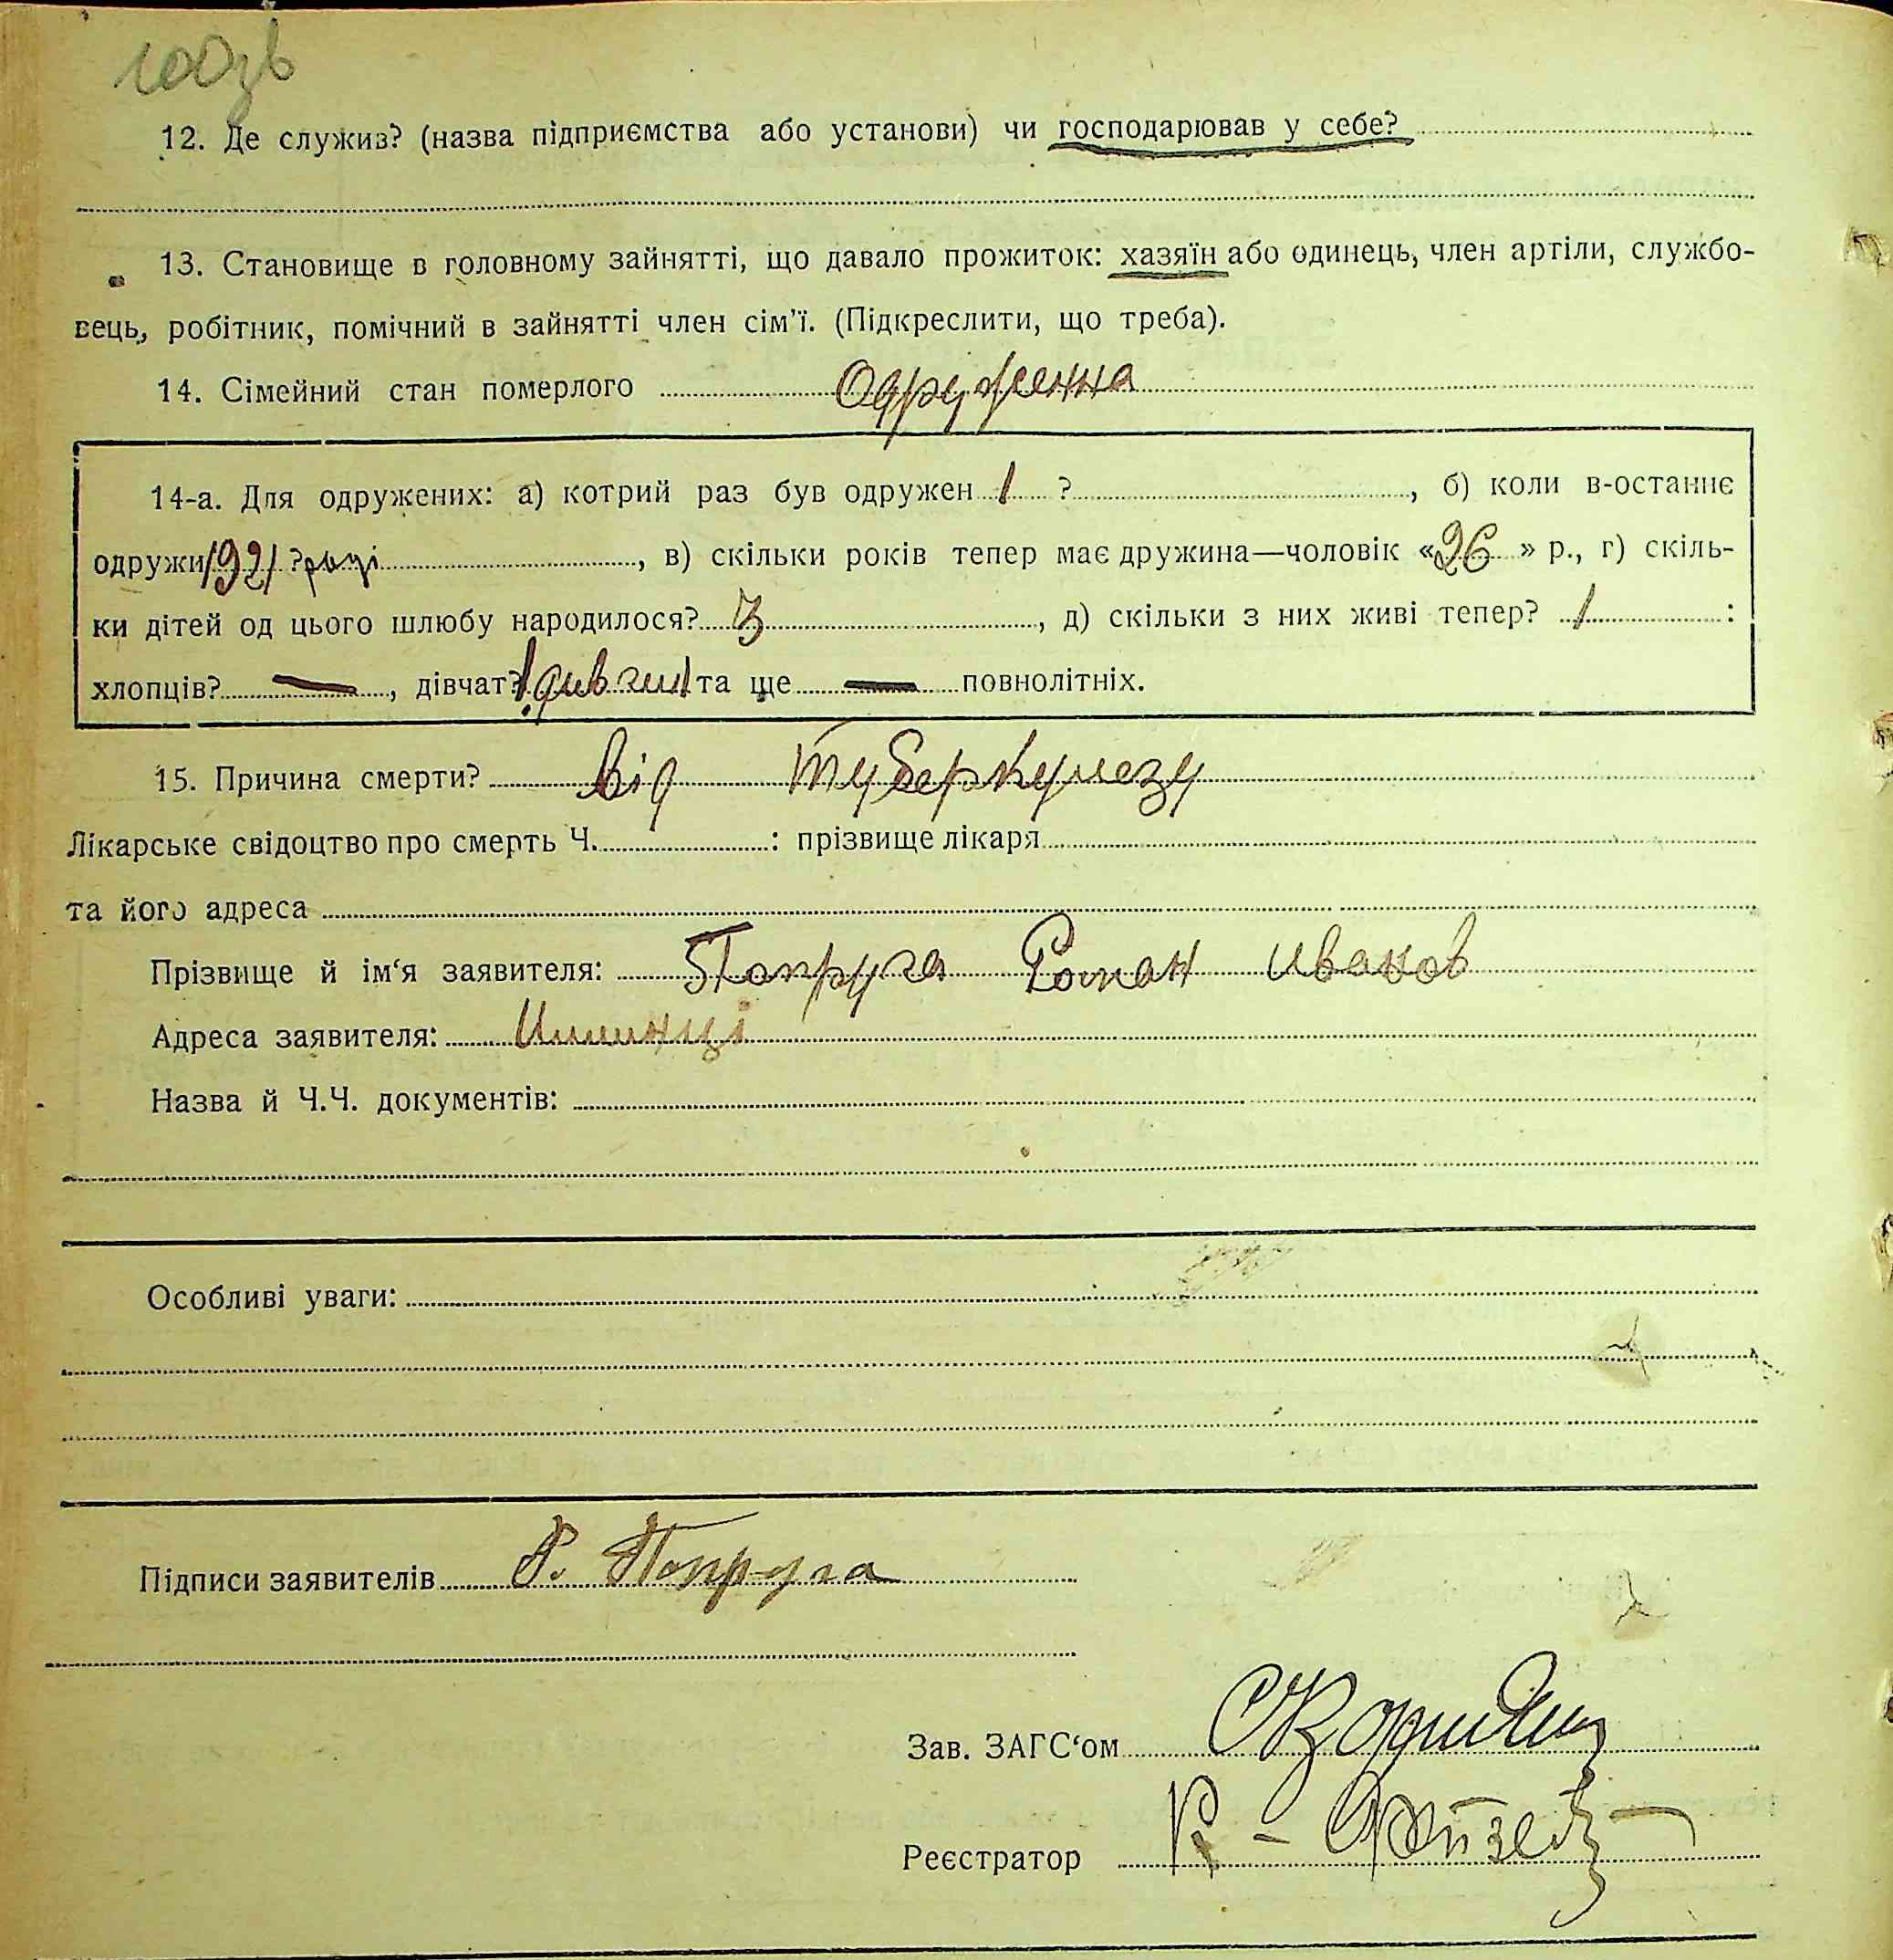 100зв
12. Де служив? (назва підприємства або установи) чи господарював у себе?
13. Становище в головному зайнятті, що давало прожиток: хазяїн або одинець, член артіли, службо-
вець, робітник, помічний в зайнятті член сім'ї. (Підкреслити, що треба).
14. Сімейний стан померлого Одруженна
14-а. Для одружених: а) котрий раз був одружен 1 ?, б) коли в-останнє
одружи 1921 ? році, в) скільки років тепер має дружина—чоловік «26» р., г) скіль-
ки дітей од цього шлюбу народилося? 3, д) скільки з них живі тепер? 1 :
хлопців? —, дівчат? 1 та ще — повнолітніх.
15. Причина смерти? Від туберкулезу
Лікарське свідоцтво про смерть Ч. : прізвище лікаря
та його адреса
Прізвище й ім'я заявителя: Попруга Роман Иванов
Адреса заявителя:
Назва й Ч.Ч. документів:
Особливі уваги:
Підписи заявителів Р. Попруга
Зав. ЗАГС'ом
Реєстратор